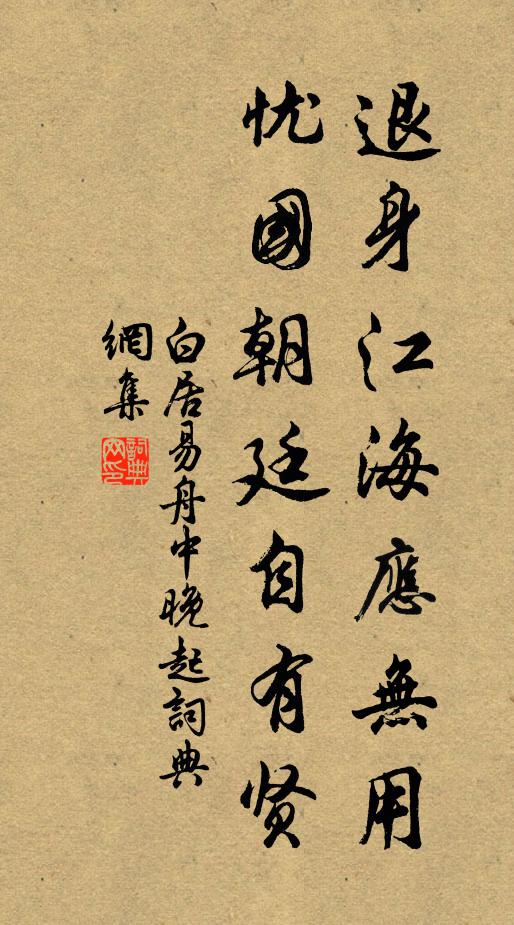 退身江海應無用
忧國朝廷自有贤
白居易舟中晚起詞典
網集
詞典
网印